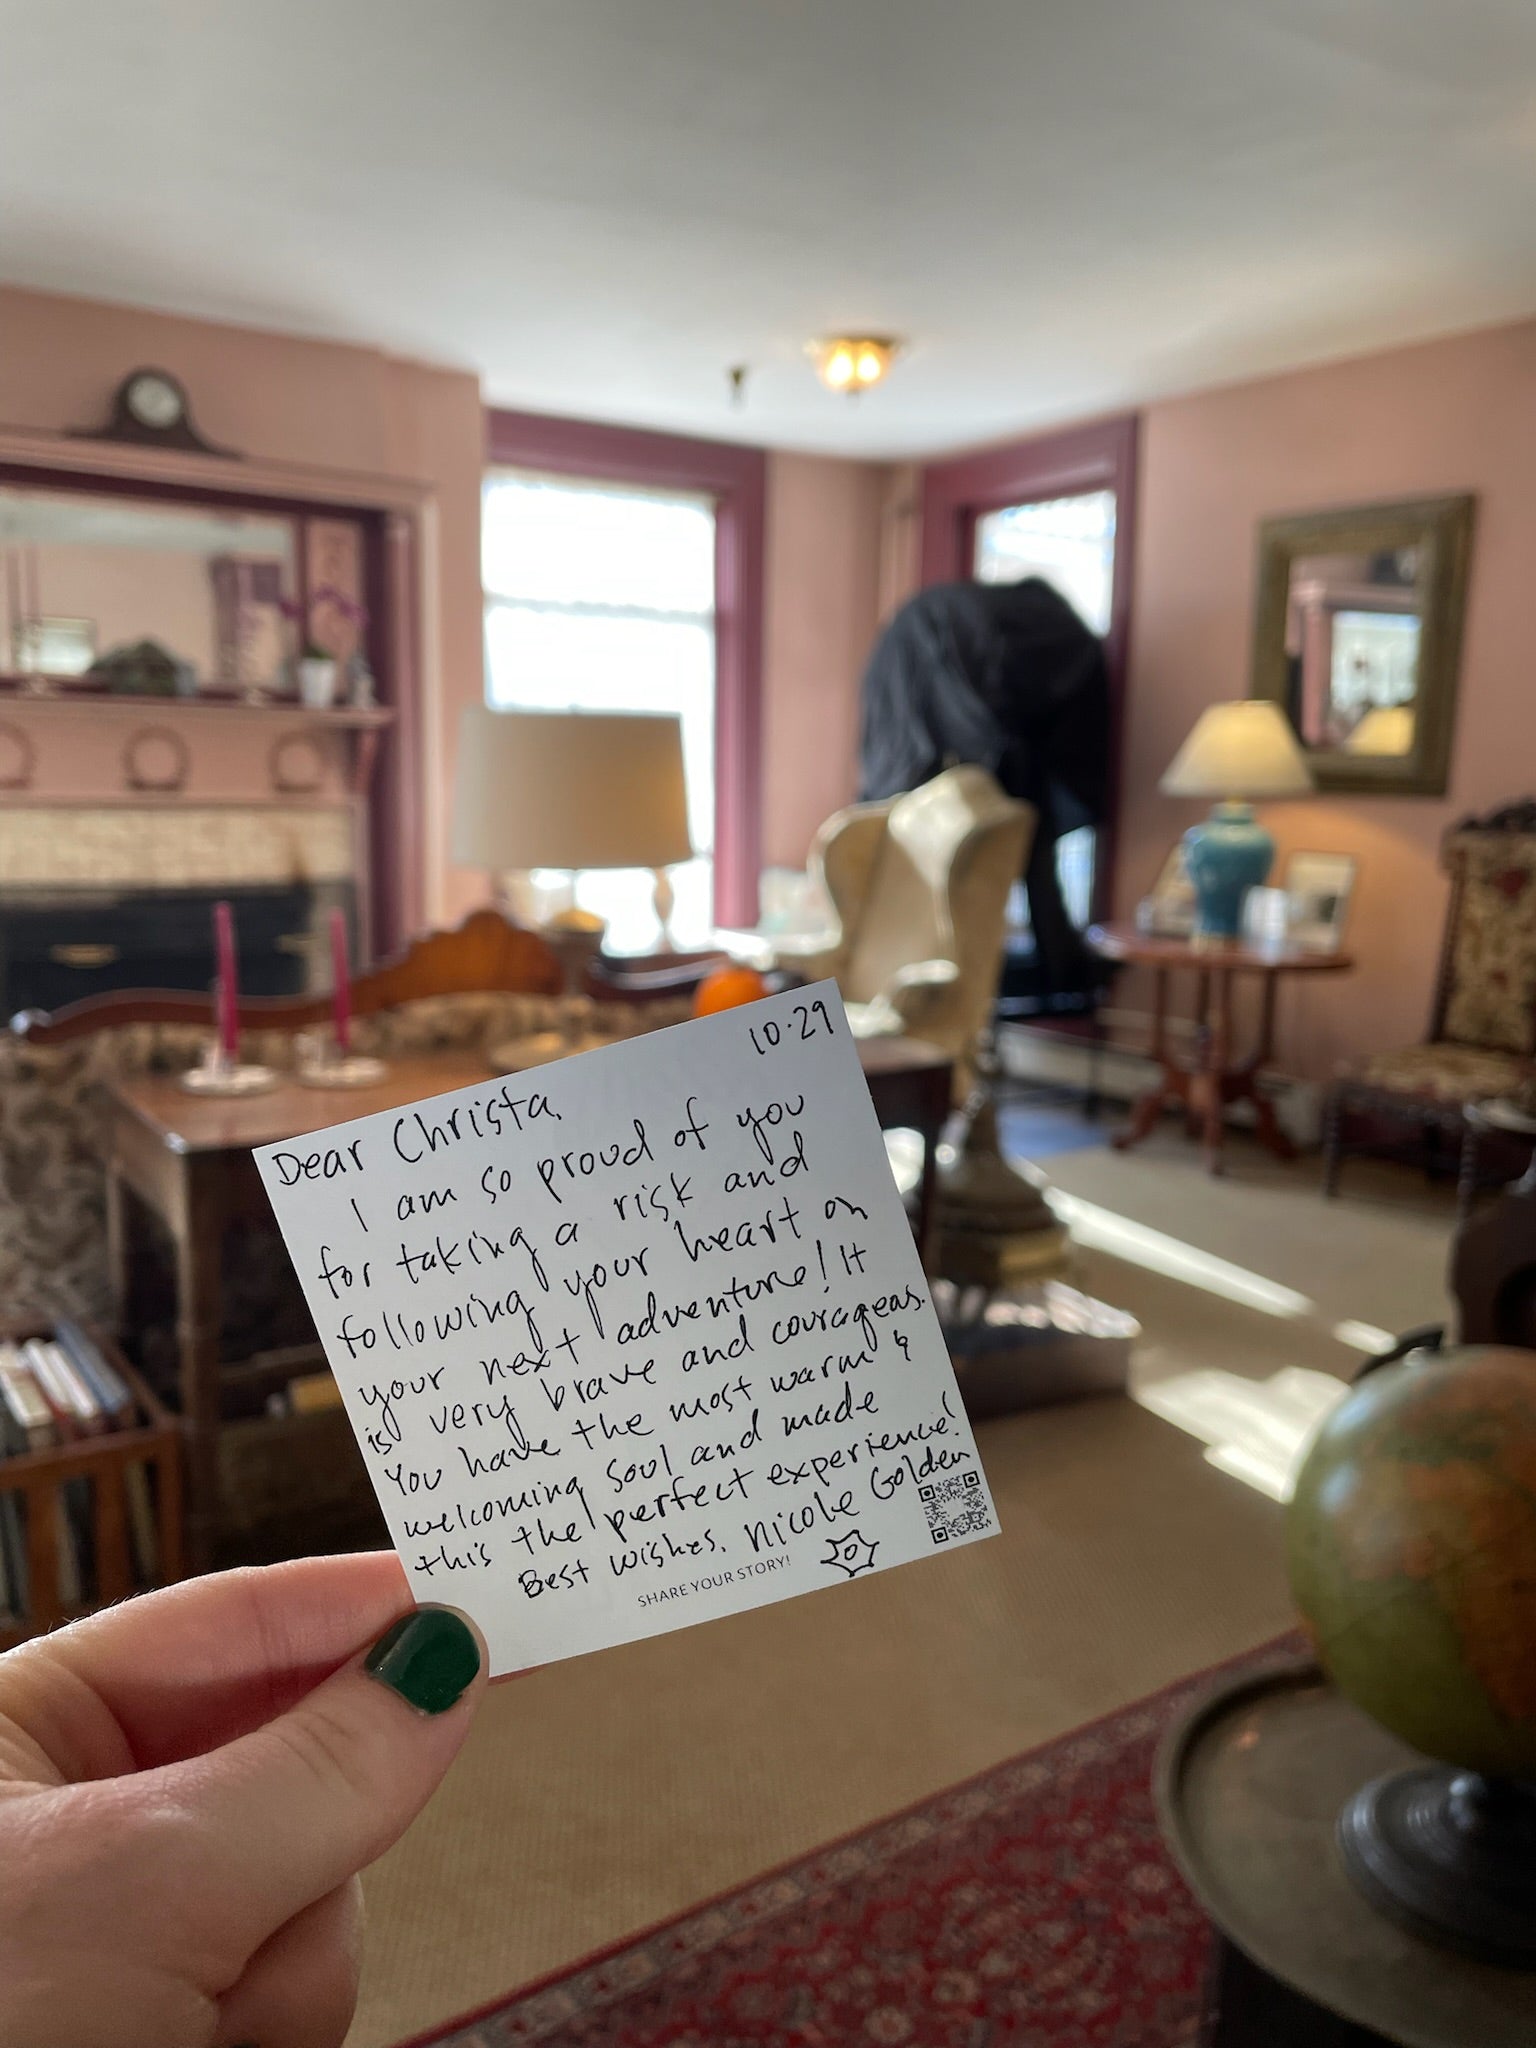 10.29
Dear Christa,
I am so proud of you
for taking a risk and
following your heart on
your next adventure! It
is very brave and courageas.
You have the most warm &
welcoming soul and made
this the perfect experience!
Best wishes, Nicole Golden
SHARE YOUR STORY!